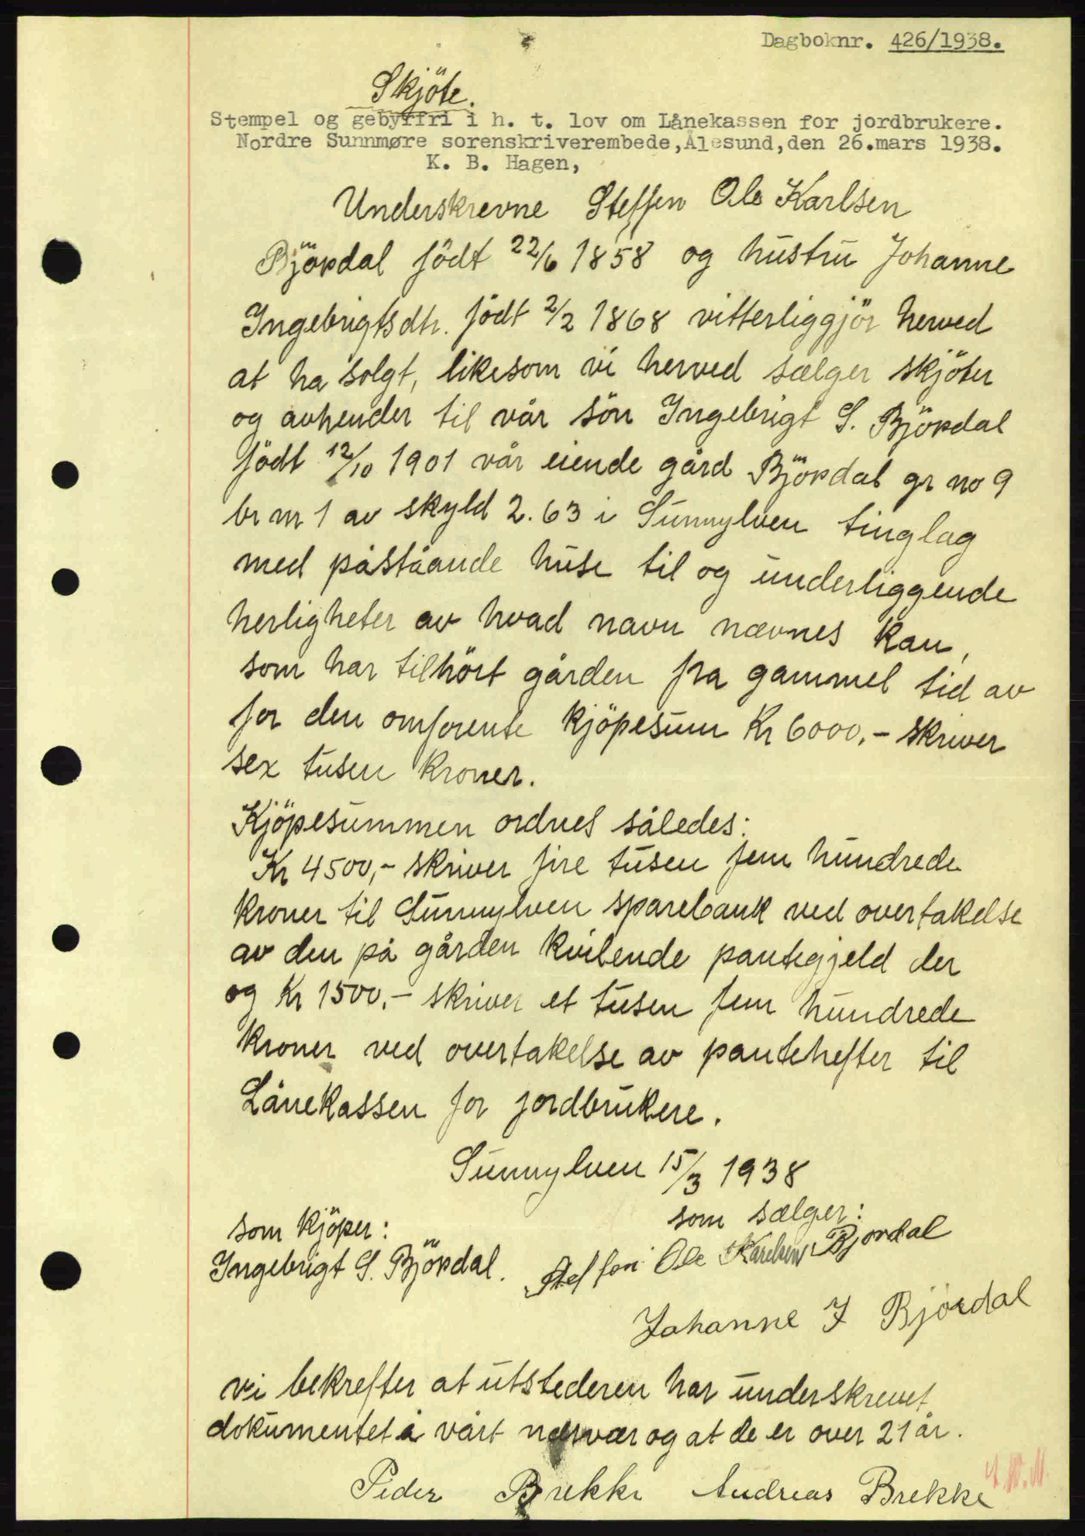 Dagboknr. 426/1938.
Skjöte.
Stempel og gebyrfri i h. t. lov om Lånekassen for jordbrukere.
Nordre Sunnmøre sorenskriverembede, Ålesund, den 26.mars 1938.
K. B. Hagen,
Underskrevne Steffen Ole Karlsen
Björdal födt 22/6 1858 og hustru Johanne
Ingebrigtsdtr. födt 2/2 1868 vitterliggjör herved
at ha solgt, likesom vi herved sælger skjöter
og avhender til vår sön Ingebrigt S. Björdal
födt 12/10 1901 vår eiende gård Björdal gr no 9
br nr 1 av skyld 2.63 i Sunnylven tinglag
med påståande huse til og underliggende
herligheter av hvad navn nævnes kan,
som har tilhört gården fra gammel tid av
for den omforente kjöpesum Kr 6000,- skriver
sex tusen kroner.
Kjöpesummen ordnes således:
Kr 4500,- skriver fire tusen fem hundrede
kroner til Sunnylven sparebank ved overtakelse
av den på gården kvilende pantegjeld der
og Kr 1500,- skriver et tusen fem hundrede
kroner ved overtakelse av pantehefter til
Lånekassen for jordbrukere.
Sunnylven 15/3 1938
som kjöper:
som sælger:
Ingebrigt S. Björdal.
Steffen Ole Karlsen Bjordal
Johanne I Bjørdal
vi bekrefter at utstederen har underskrevet
dokumentet i vårt nærvær og at de er over 21 år.
Peder Brekke Andreas Brekke